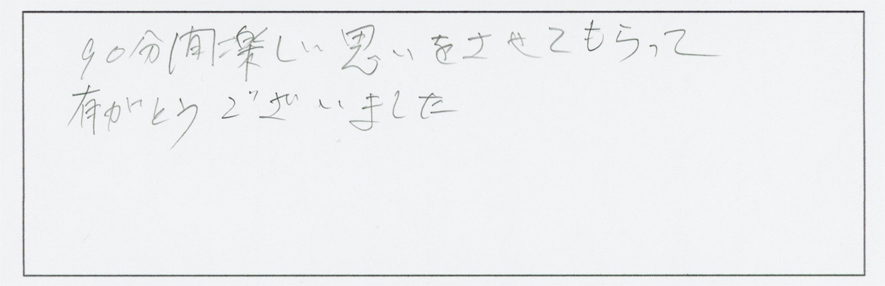 90分間楽しい思いをさせてもらって
有がとうございました